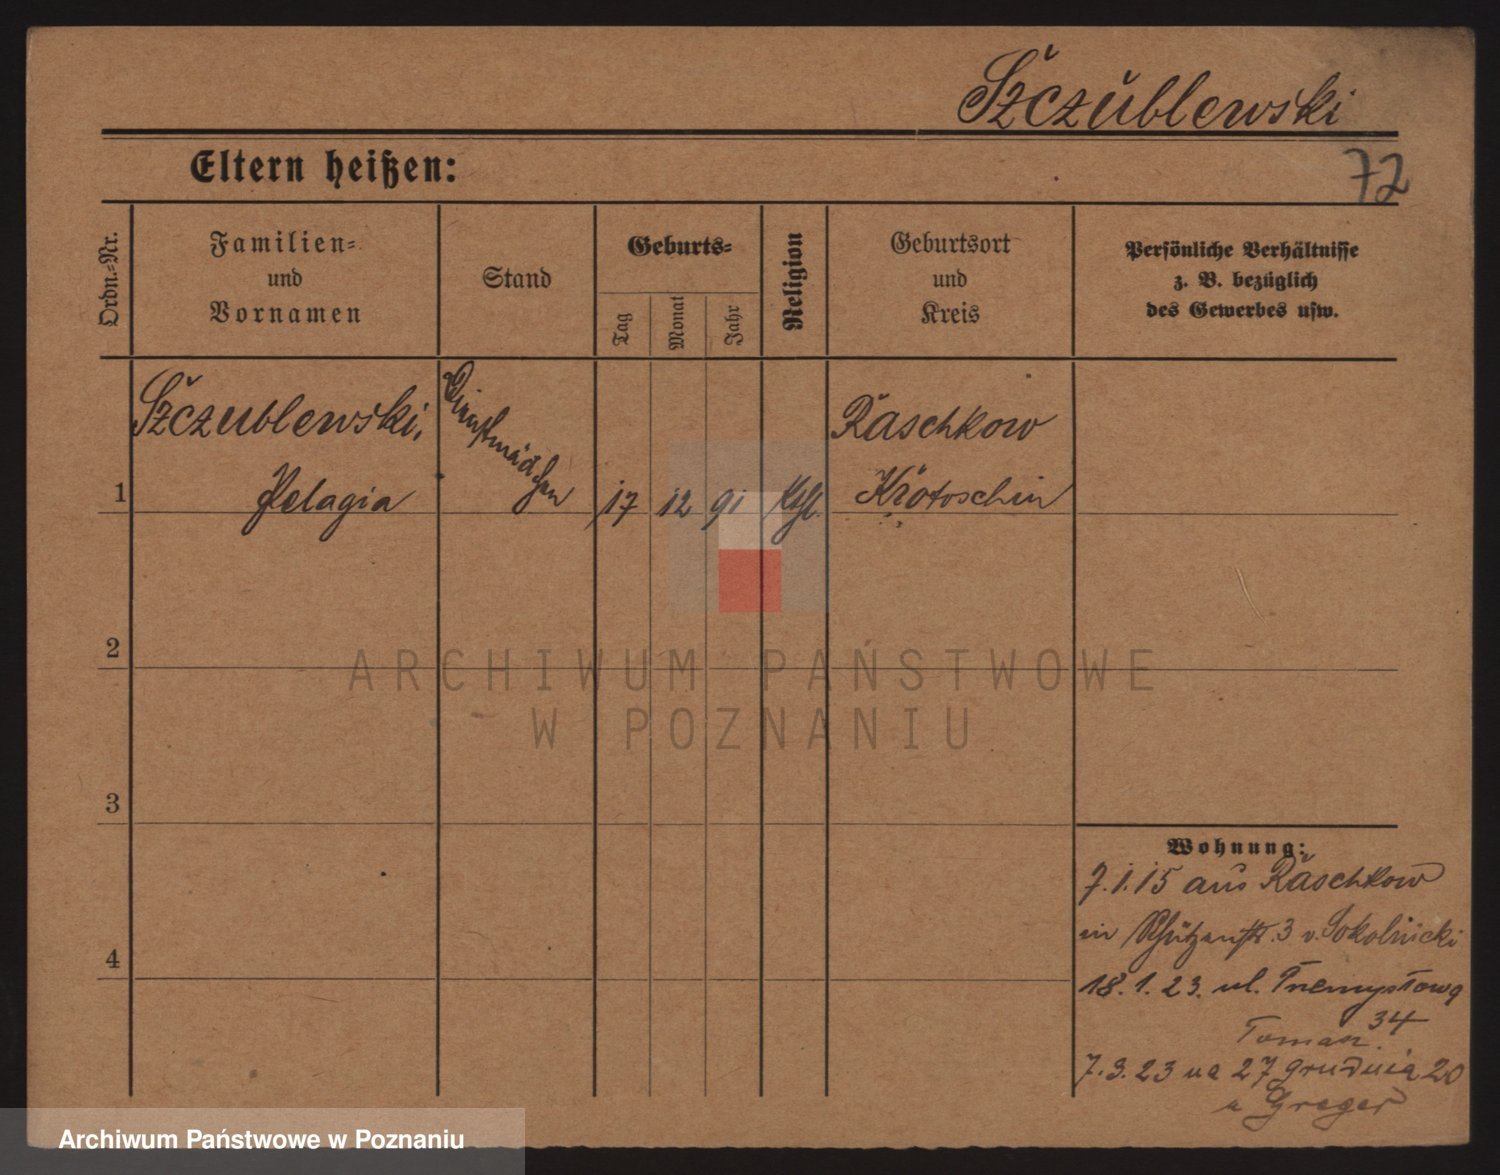 Szczublewski
Eltern heißen:
72
Ordn.-Nr.
Familien-
und
Vornamen
Stand
Geburts-
Tag
Monat
Jahr
Religion
Geburtsort
und
Kreis
Persönliche Verhältnisse
z. B. bezüglich
des Gewerbes usw.
Szczublewski,
Pelagia
Dienstmädchen
1
17
12
91
Kthl.
Raschkow
Krotoschin
2
3
4
ARCHIWUM PAŃSTWOWE
W POZNANIU
Wohnung:
7.1.15 aus Raschkow
in Schützenstr. 3 v. Sokolnicki
18.1.23. ul.
34
7.3.23 na 27 grudnia 20
u Greger
Archiwum Państwowe w Poznaniu